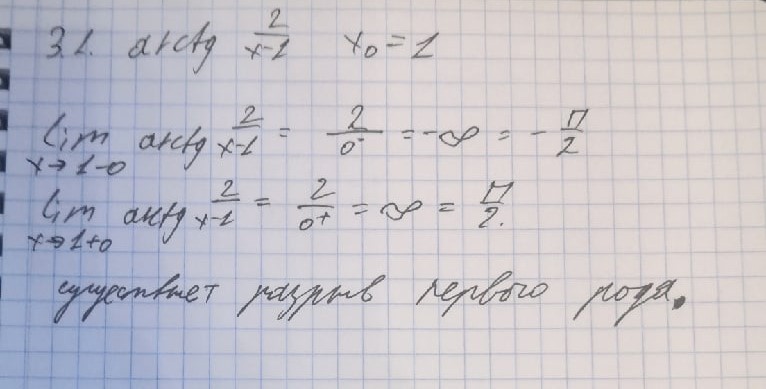 3.1. arctg 2/(x-1) x₀ = 1
lim x→1-0 arctg 2/(x-1) = 2/0⁻ = -∞ = - π/2
lim x→1+0 arctg 2/(x-1) = 2/0⁺ = ∞ = π/2.
существует разрыв первого рода.